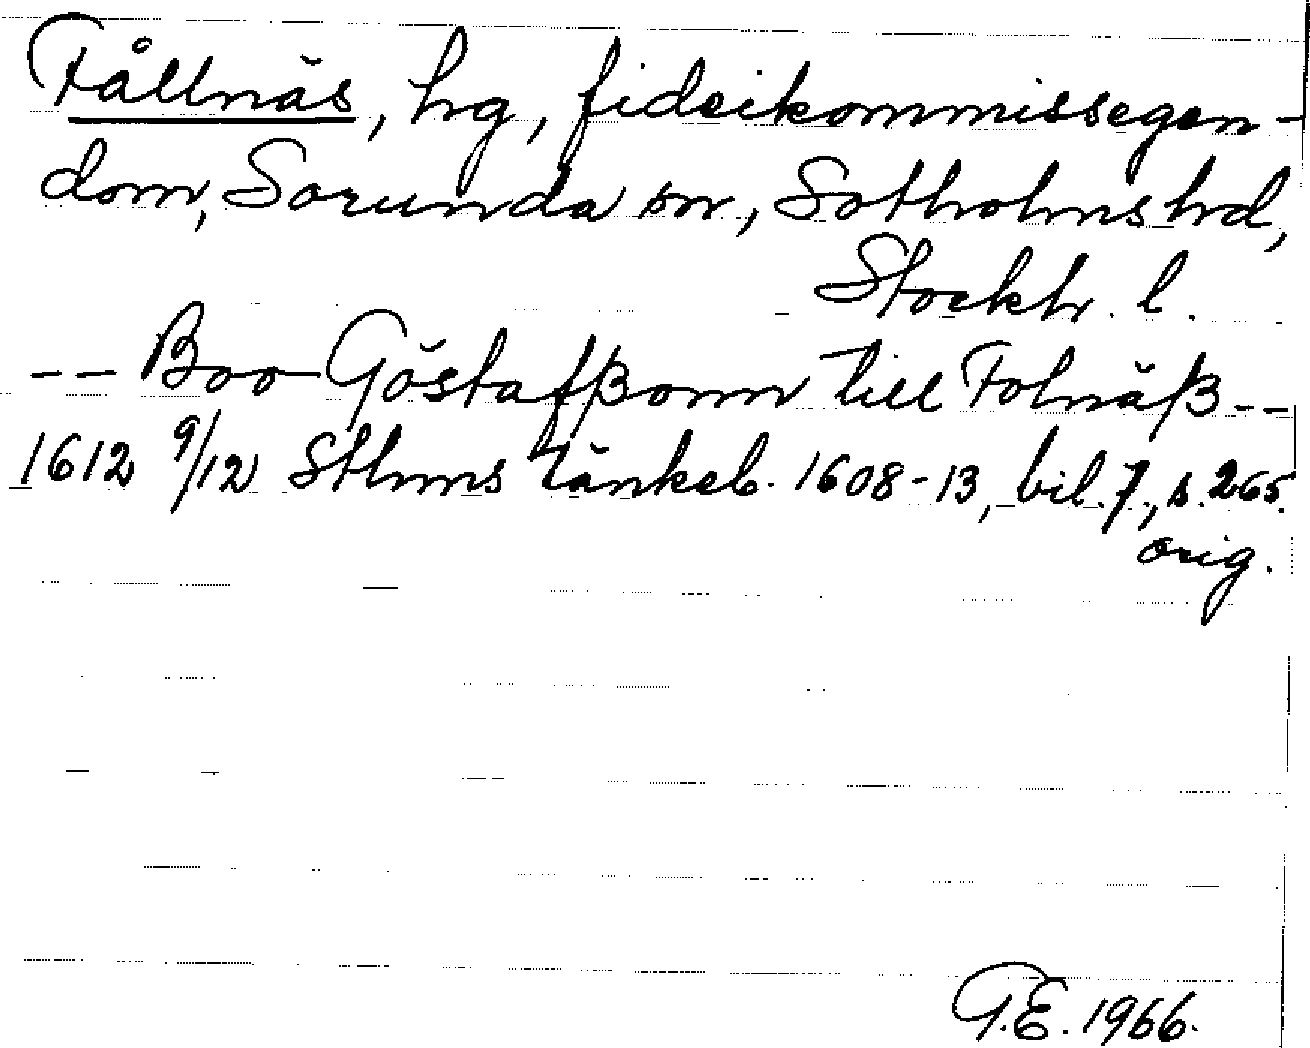 Fållnäs, hg, fideikommissegen-
dom, Sorunda sn, Sotholms hd,
Stockh. l.
-- Boo Göstafßonn till Folnäß --
1612 9/12 Sthms tänkeb. 1608-13, bil. 7, s. 265.
orig.
G.E. 1966.